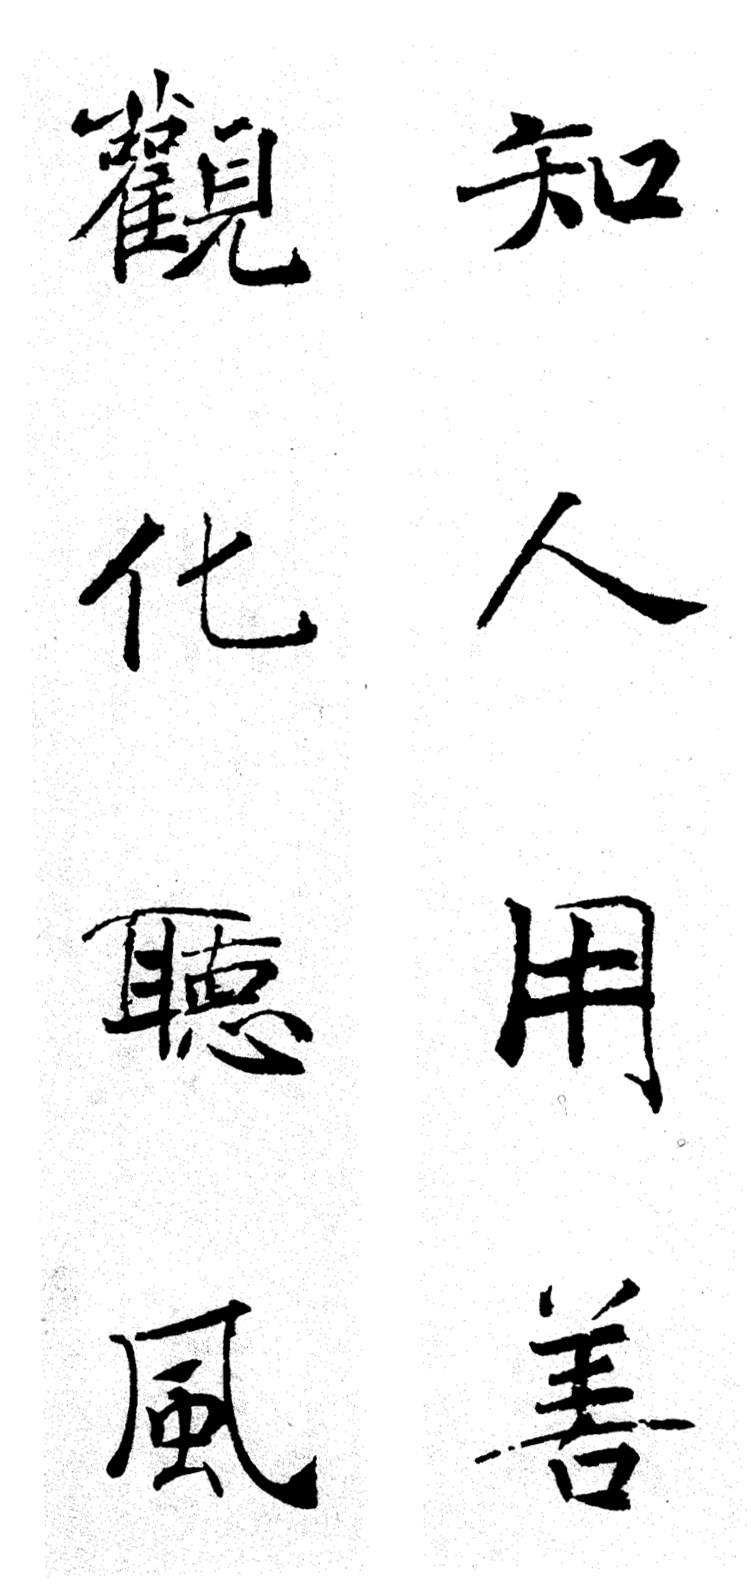 知人用善
觀化聽風